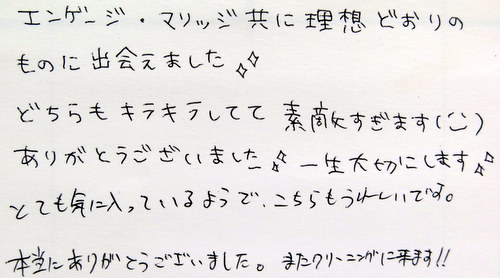 エンゲージ・マリッジ共に理想どおりの
ものに出会えました✧✧
どちらもキラキラしてて素敵すぎます(¨)
ありがとうございました✧✧一生大切にします✧✧
とても気に入っているようで、こちらもうれしいです。
本当にありがとうございました。またクリーニングに来ます!!